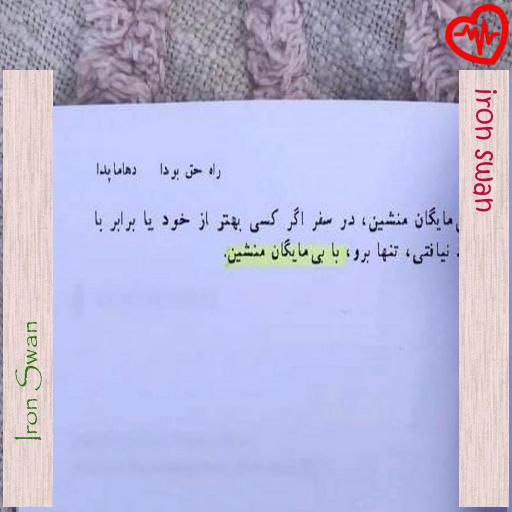 iron swan
راه حق بودا دهاماپدا
مایگان منشین، در سفر اگر کسی بهتر از خود یا برابر با
نیافتی، تنها برو، با بی‌مایگان منشین.
Iron Swan